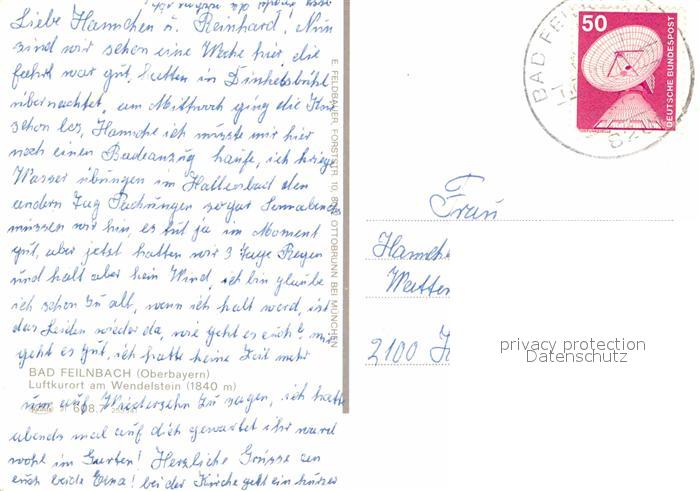 Liebe Hannchen u. Reinhard! Nun
sind wir schon eine Woche hier, die
fahrt war gut, hatten in Dinkelsbühl
übernachtet, am Mittwoch ging die Kur
schon los, Hannche ich müsste mir hier
noch einen Badeanzug kaufe, ich kriege
Wasser übungen im Hallenbad den
andern Tag Packungen sogar Sonnabends
müssen wir hin, es tut ja im Moment
gut, aber jetzt hatten wir 3 Tage Regen
und kalt aber kein Wind, ich bin glaube
ich schon zu alt, wenn ich kalt werd, ist
das Leiden wieder da, wie geht es euch? mir
geht es gut, ich hatte keine Zeit mehr
BAD FEILNBACH (Oberbayern)
Luftkurort am Wendelstein (1840 m)
608.7
um auf Wiedersehn zu sagen, ich hatte
abends mal auf dich gewartet ihr ward
wohl im Garten! Herzliche Grüsse an
euch beide Erna! bei der Kirche geht ein kurzer
E. FELDBAUER, FORSTSTR. 10, 8012 OTTOBRUNN BEI MÜNCHEN
BAD FEILN
820
50
DEUTSCHE BUNDESPOST
Frau
Hannche
2100
privacy protection
Datenschutz